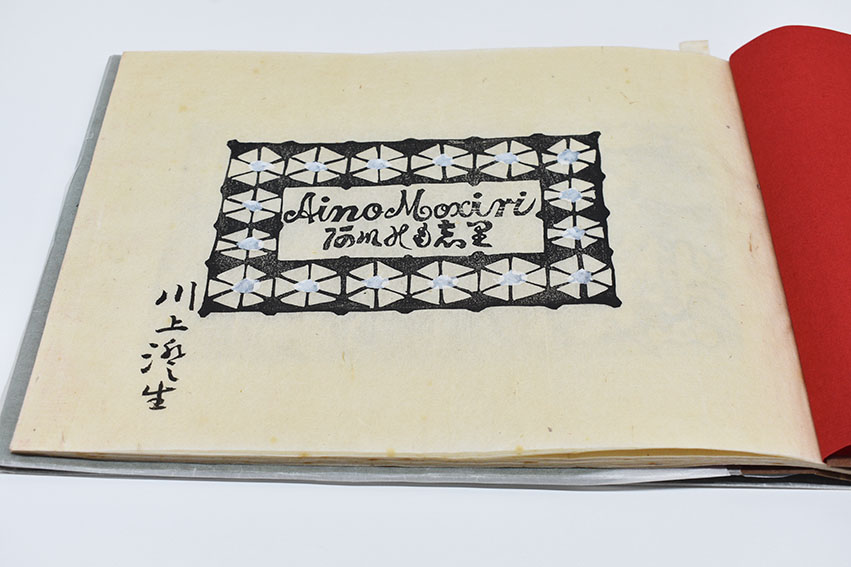 Aino Moxiri
阿 志里
川上澄生